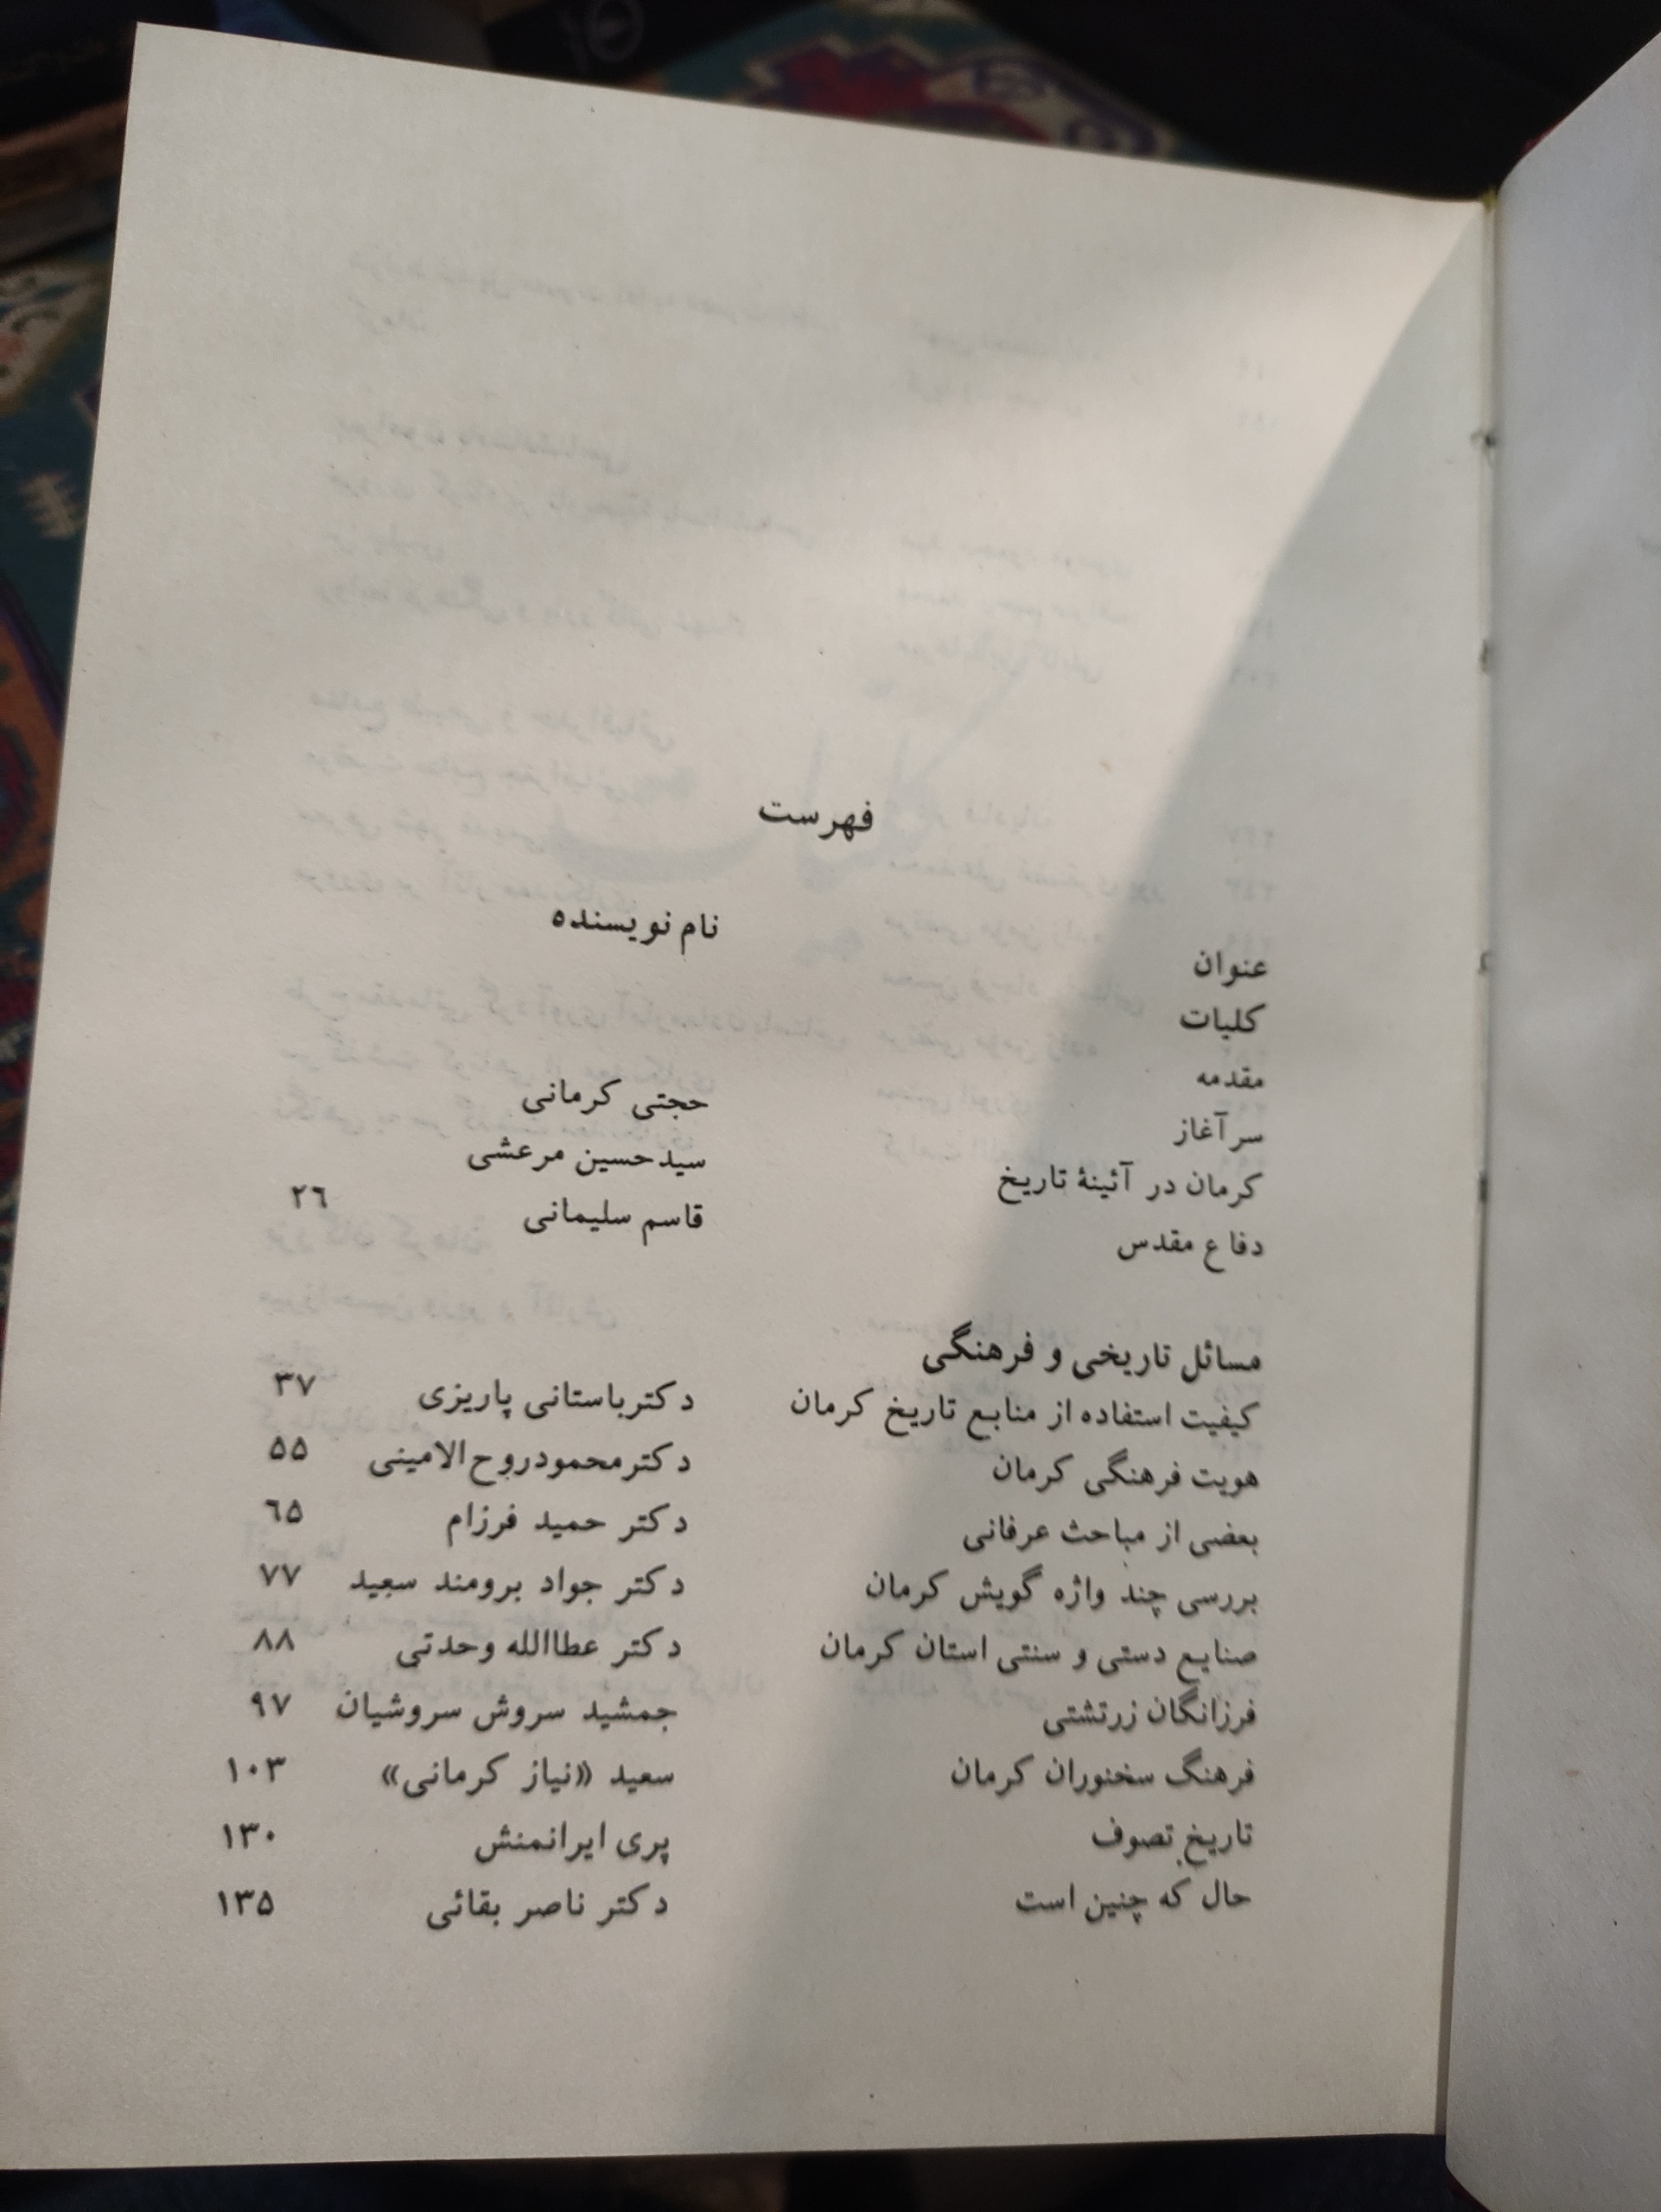 فهرست
عنوان نام نویسنده
کلیات
مقدمه
سرآغاز حجتی کرمانی
کرمان در آئینهٔ تاریخ سیدحسین مرعشی
دفاع مقدس قاسم سلیمانی ۲٦
مسائل تاریخی و فرهنگی
کیفیت استفاده از منابع تاریخ کرمان دکترباستانی پاریزی ۳۷
هویت فرهنگی کرمان دکترمحمودروح‌الامینی ۵۵
بعضی از مباحث عرفانی دکتر حمید فرزام ٦۵
بررسی چند واژه گویش کرمان دکتر جواد برومند سعید ۷۷
صنایع دستی و سنتی استان کرمان دکتر عطاالله وحدتی ۸۸
فرزانگان زرتشتی جمشید سروش سروشیان ۹۷
فرهنگ سخنوران کرمان سعید «نیاز کرمانی» ۱۰۳
تاریخ تصوف پری ایرانمنش ۱۳۰
حال که چنین است دکتر ناصر بقائی ۱۳۵